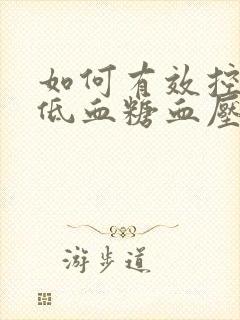 如何有效控
低血糖血壓
游步道